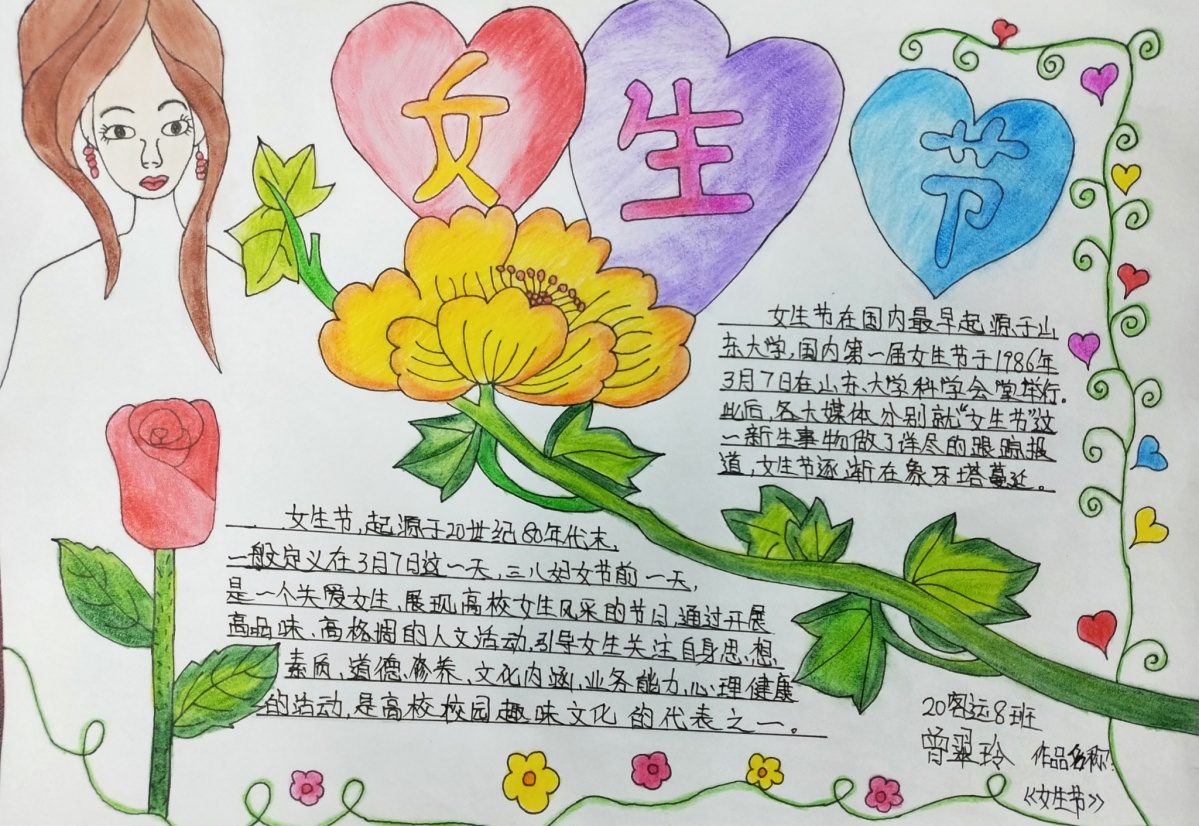 女生节
女生节在国内最早起源于山
东大学,国内第一届女生节于1986年
3月7日在山东大学科学会堂举行。
此后,各大媒体分别就“女生节”这
一新生事物做了详尽的跟踪报
道,女生节逐渐在象牙塔蔓延。
女生节,起源于20世纪80年代末,
一般定义在3月7日这一天,三八妇女节前一天,
是一个关爱女生、展现高校女生风采的节日,通过开展
高品味、高格调的人文活动,引导女生关注自身思想、
素质、道德、修养、文化内涵,业务能力,心理健康
的活动,是高校校园趣味文化的代表之一。
20客运8班
曾翠玲 作品名称:
《女生节》